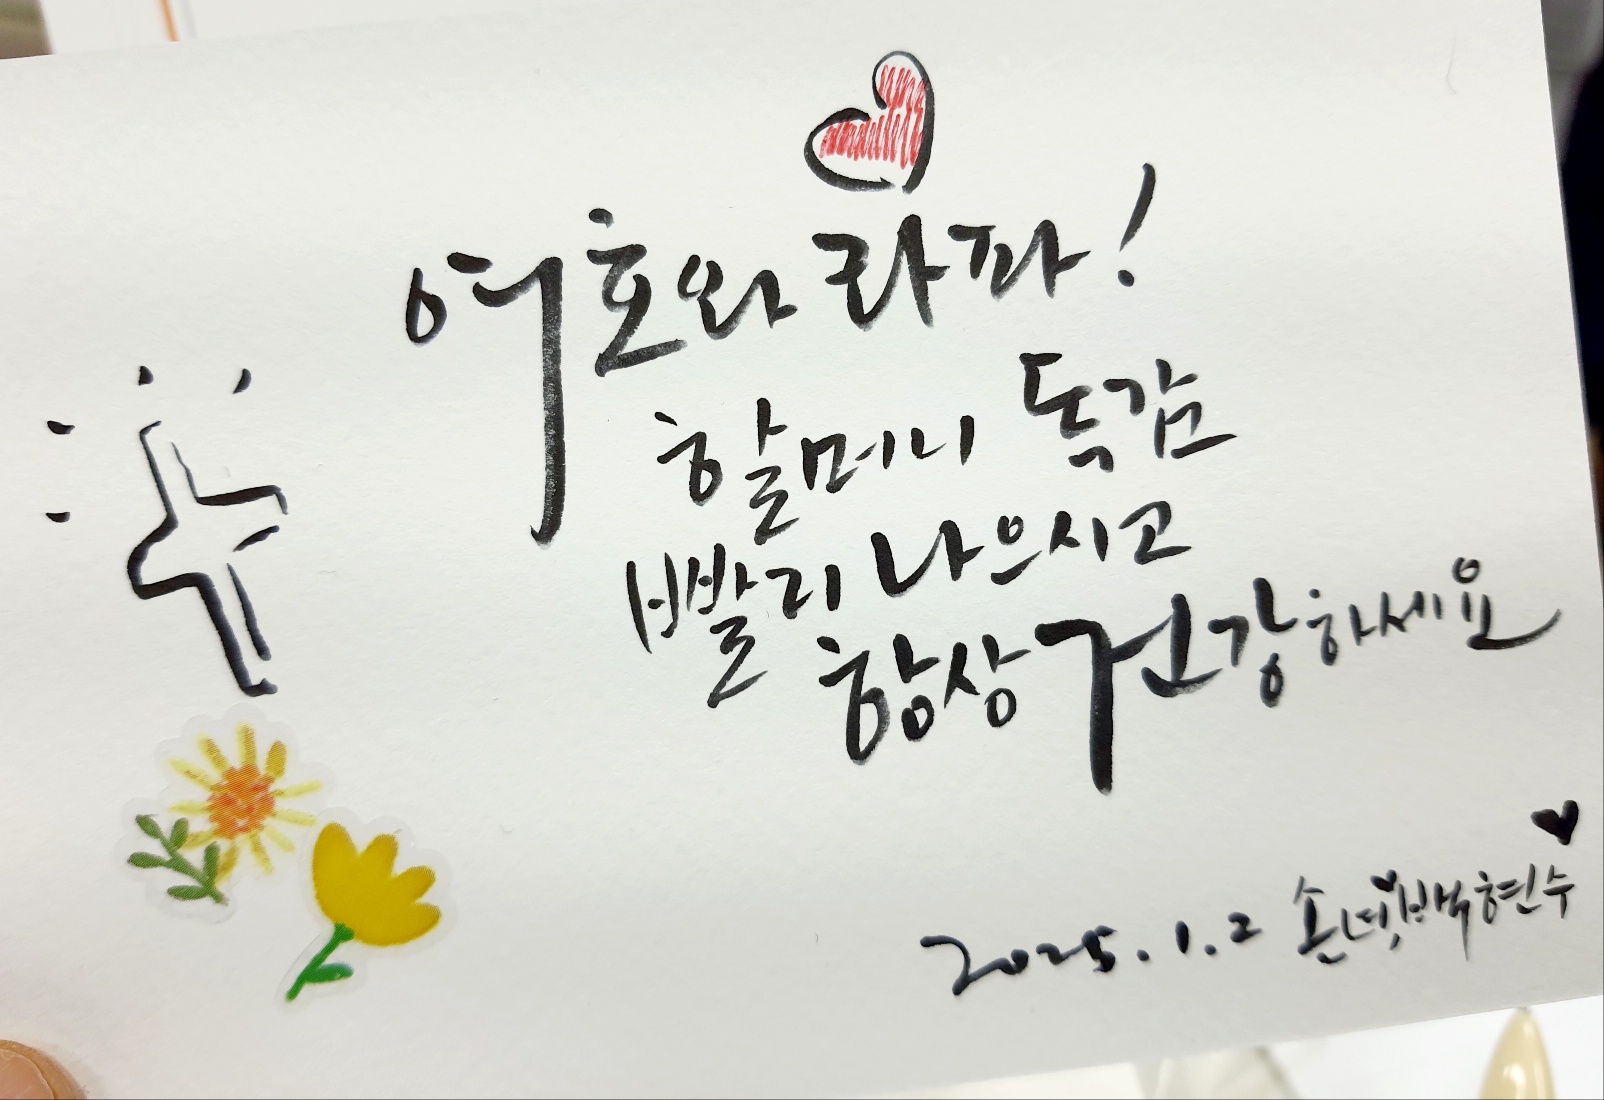 여호와 라파!
할머니 독감
빨리 나으시고
항상 건강하세요
2025.1.2 손녀 백현수